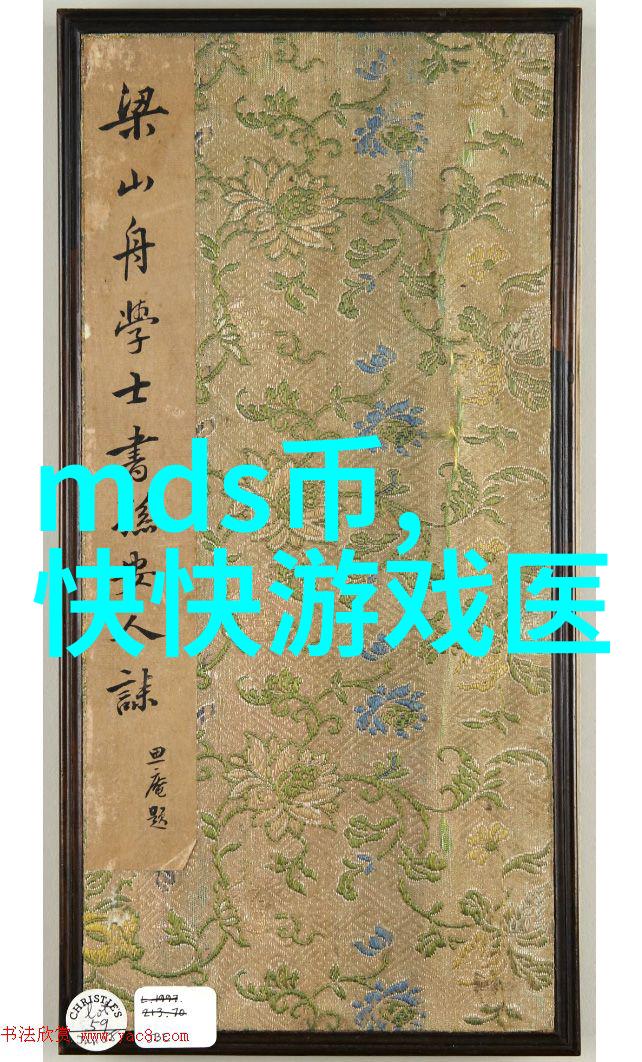 梁山舟學士書孫安人誄
庵題
mds币,
快快游戏医
CHRISTIE'S
lot
59
L.1997.
213.70
书法欣赏 www.yac8.com